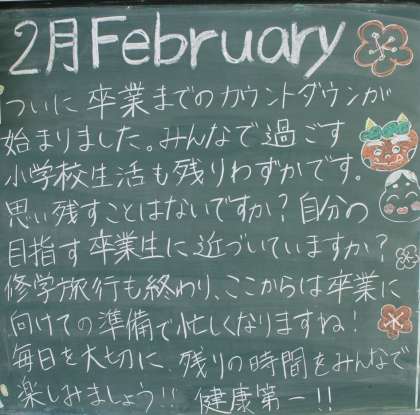 2月February
ついに卒業までのカウントダウンが
始まりました。みんなで過ごす
小学校生活も残りわずかです。
思い残すことはないですか？自分の
目指す卒業生に近づいていますか？
修学旅行も終わり、ここからは卒業に
向けての準備で忙しくなりますね！
毎日を大切に、残りの時間をみんなで
楽しみましょう!! 健康第一!!